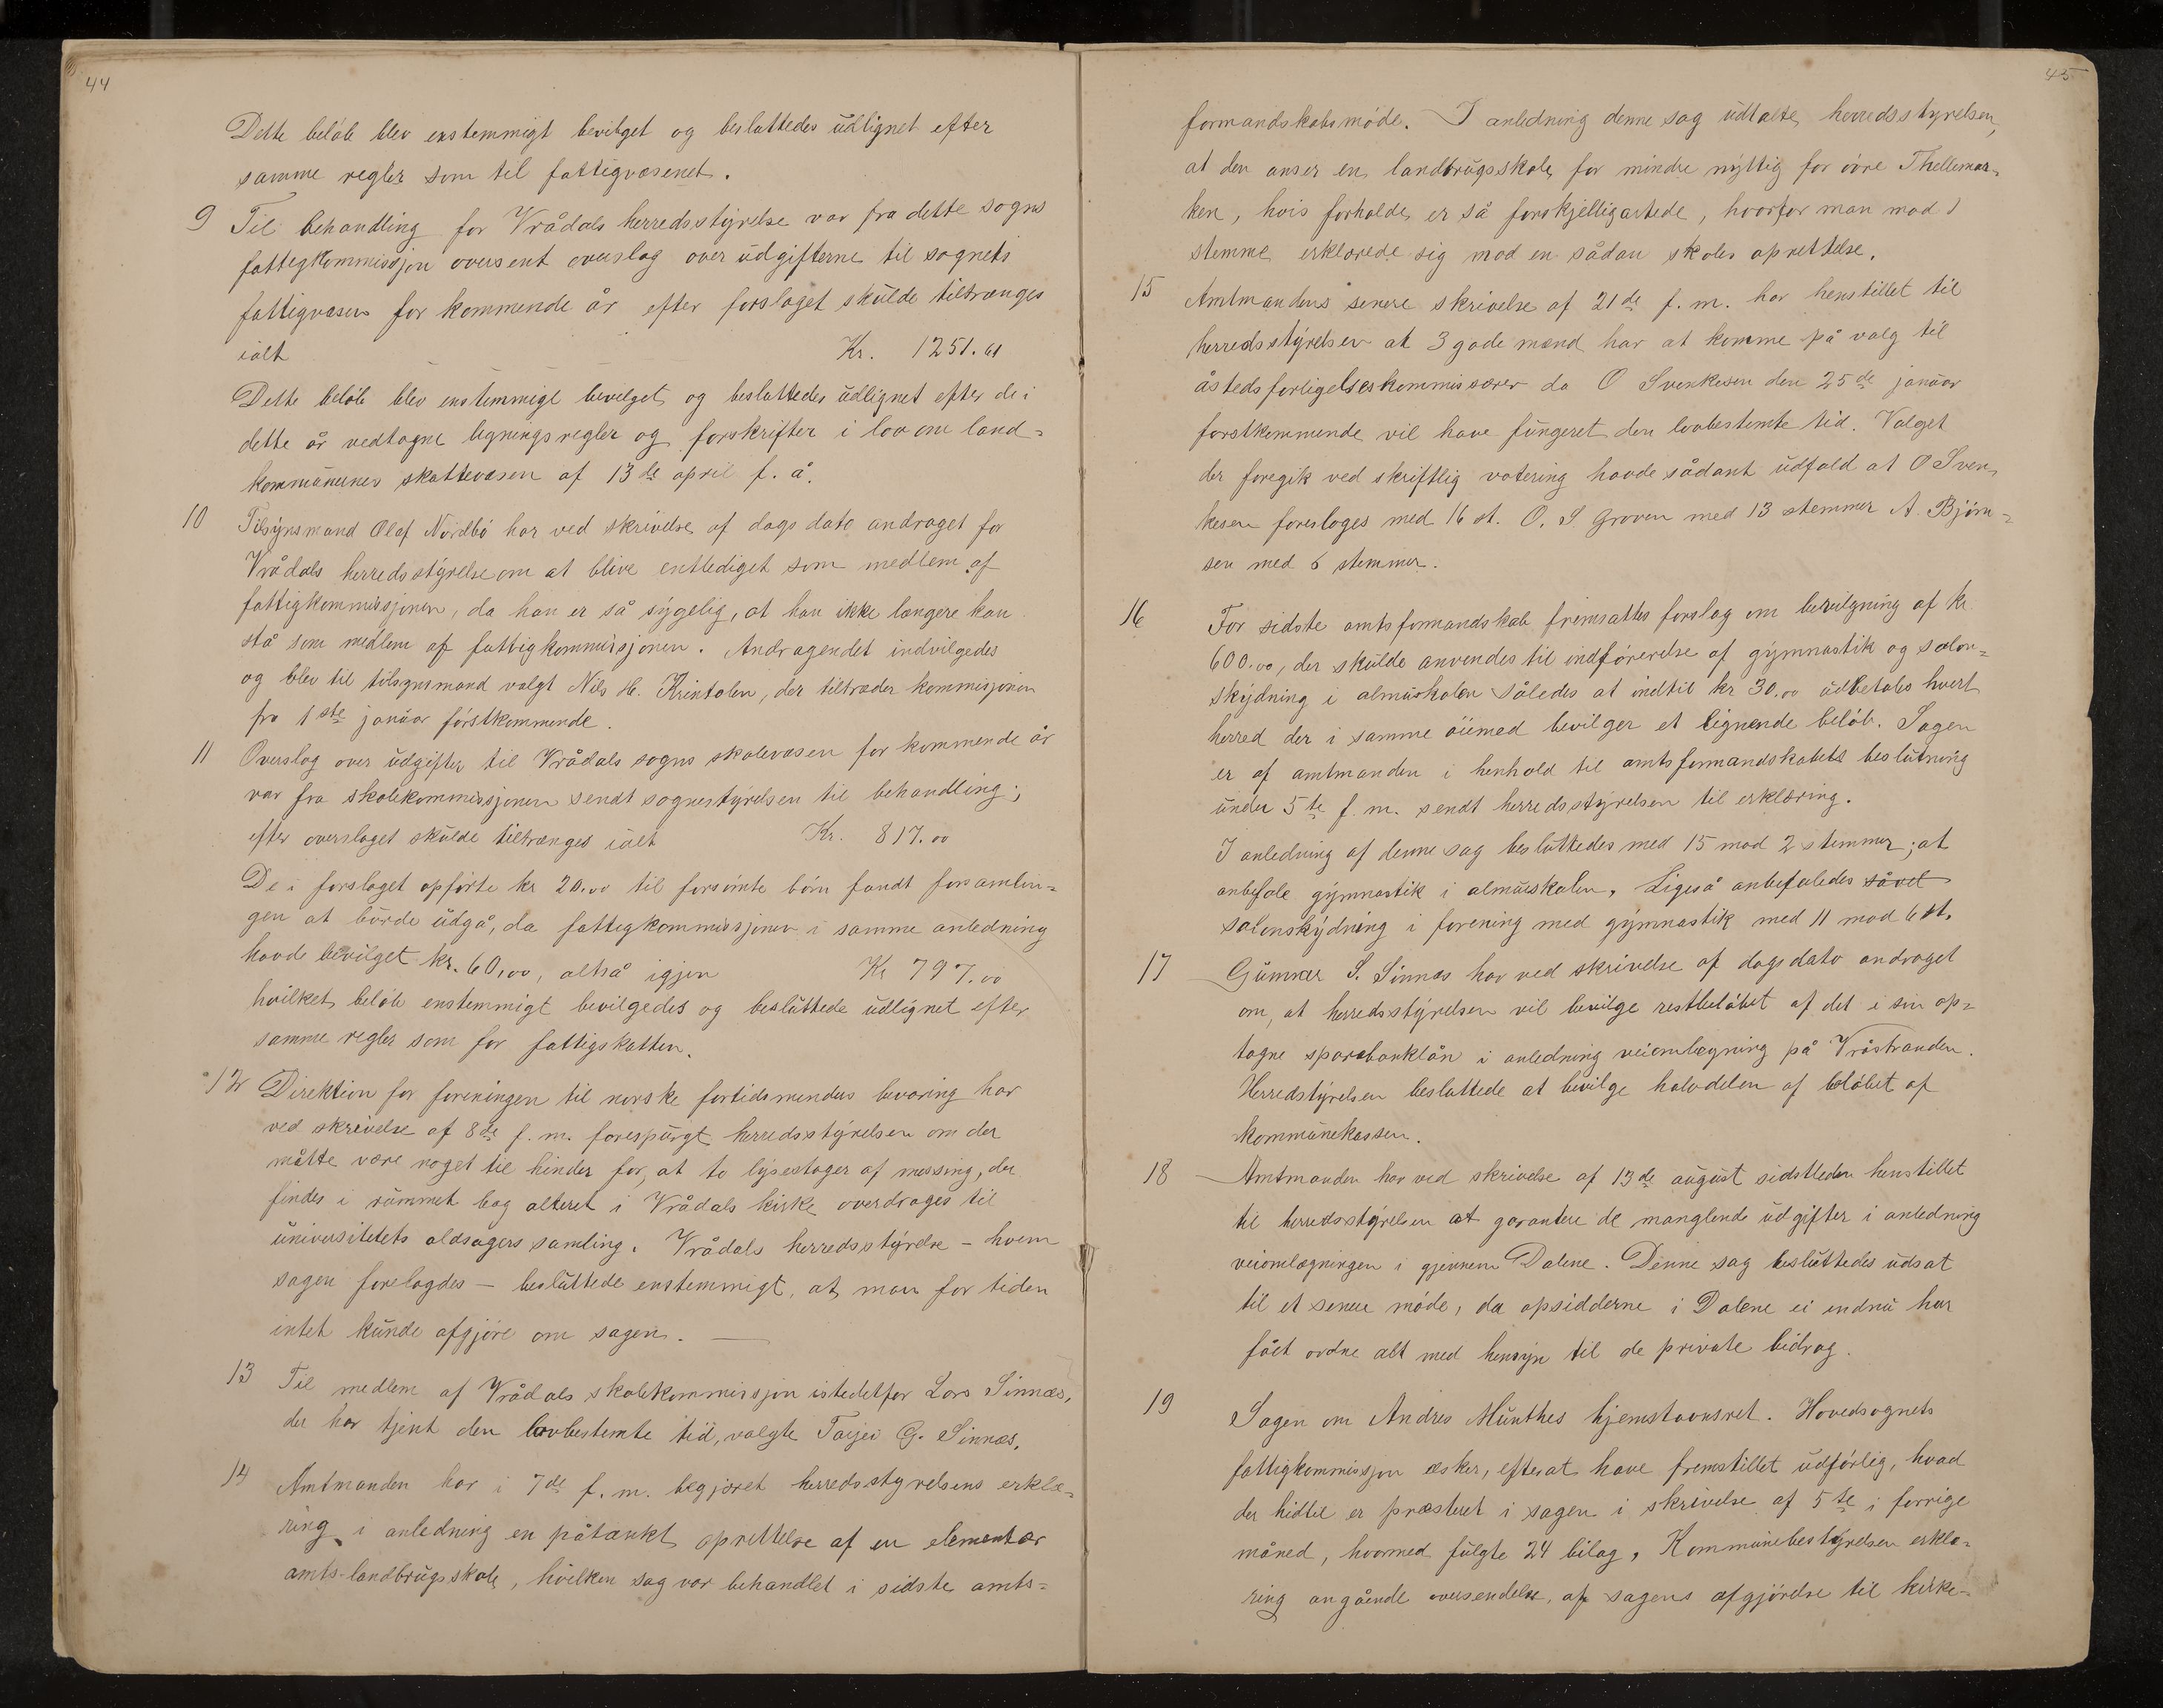 44
Dette beløb blev enstemmigt bevilget og besluttedes udlignet efter
samme regler som til fattigvæsenet.
9 Til behandling for Vrådals herredsstyrelse var fra dette sogns
fattigkommissjon oversent overslag over udgifterne til sognets
fattigvæsen for kommende år efter forslaget skulde tiltrænges
ialt Kr. 1251.61
Dette beløb blev enstemmigt bevilget og besluttedes udlignet efter de i
dette år vedtagne ligningsregler og forskrifter i lov om land-
kommunernes skattevæsen af 13de april f. å.
10 Tilsynsmand Olaf Nordbø har ved skrivelse af dags dato andraget for
Vrådals herredsstyrelse om at blive entlediget som medlem af
fattigkommissjonen, da han er så sygelig, at han ikke længere kan
stå som medlem af fattigkommissjonen. Andragendet indvilgedes
og blev til tilsynsmand valgt Nils H. Krintolen, der tiltræder kommissjonen
fra 1ste januar førstkommende.
11 Overslag over udgifter til Vrådals sogns skolevæsen for kommende år
var fra skolekommissjonen sendt sognestyrelsen til behandling;
efter overslaget skulde tiltrænges ialt Kr. 817.00
De i forslaget opførte kr 20.00 til forsømte børn fandt forsamlin-
gen at burde udgå, da fattigkommissjonen i samme anledning
havde bevilget kr. 60,00, altså igjen Kr 797.00
hvilket beløb enstemmigt bevilgedes og besluttede udlignet efter
samme regler som for fattigskatten.
12 Direktion for foreningen til norske fortidsmendus bevaring har
ved skrivelse af 8de f. m. forespurgt herredsstyrelsen om der
måtte være noget til hinder for, at to lysestager af messing, der
findes i rummet bag alteret i Vrådals kirke overdrages til
universitetets oldsagers samling. Vrådals herredsstyrelse – hvem
sagen forelagdes – besluttede enstemmigt, at man for tiden
intet kunde afgjøre om sagen. —
13 Til medlem af Vrådals skolekommissjon istedetfor Lars Sinnæs,
der har tjent den lovbestemte tid, valgte Tarjei G. Sinnæs.
14 Amtmanden har i 7de f. m. begjæret herredsstyrelsens erklæ-
ring i anledning en påtænkt oprettelse af en elementær
amts-landbrugsskole, hvilken sag var behandlet i sidste amts-
45
formandskabsmøde. I anledning denne sag udtalte herredsstyrelsen,
at den anser en landbrugsskole for mindre nyttig for øvre Thellemar-
ken, hvis forholde er så forskjelligartede, hvorfor man mod 1
stemme erklærede sig mod en sådan skoles oprettelse.
15 Amtmandens senere skrivelse af 21de f. m. har henstillet til
herredsstyrelsen at 3 gode mænd har at komme på valg til
åstedsforligelseskommissærer da O Svenkesen den 25de januar
førstkommende vil have fungeret den lovbestemte tid. Valget
der foregik ved skriftlig votering havde sådant udfald at O Sven-
kesen foresloges med 16 st. O. S. Groven med 13 stemmer A. Bjørn-
sen med 6 stemmer.
16 For sidste amtsformandskab fremsattes forslag om bevilgning af kr
600.00, der skulde anvendes til indførerelse af gymnastik og salon-
skydning i almuskolen således at indtil kr 30.00 udbetales hvert
herred der i samme øiemed bevilger et lignende beløb. Sagen
er af amtmanden i henhold til amtsformandskabets beslutning
under 5te f. m. sendt herredsstyrelsen til erklæring.
I anledning af denne sag besluttedes med 15 mod 2 stemmer; at
anbefale gymnastik i almueskolen. Ligeså anbefaledes såvel
salonskydning i forening med gymnastik med 11 mod 6 st.
17 Gunnar S. Sinnæs har ved skrivelse af dags dato andraget
om, at herredsstyrelsen vil bevilge restbeløbet af det i sin op-
tagne sparebanklån i anledning veiomlægning på Vråstranden.
Herredstyrelsen besluttede at bevilge halvdelen af beløbet af
kommunekassen.
18 Amtmanden har ved skrivelse af 13de august sidstleden henstillet
til herredsstyrelsen at garantere de manglende udgifter i anledning
veiomlægningen i gjennem Dalene. Denne sag besluttedes udsat
til et senere møde, da opsidderne i Dalene ei endnu har
fået ordne alt med hensyn til de private bidrag.
19 Sagen om Andres Munthes hjemstavnsret. Hovedsognets
fattigkommissjon æsker, efterat have fremstillet udførlig, hvad
der hidtil er præsteret i sagen i skrivelse af 5te i forrige
måned, hvormed fulgte 24 bilag, Kommunebestyrelsen erklæ-
ring angående oversendelse, af sagens afgjørelse til kirke-